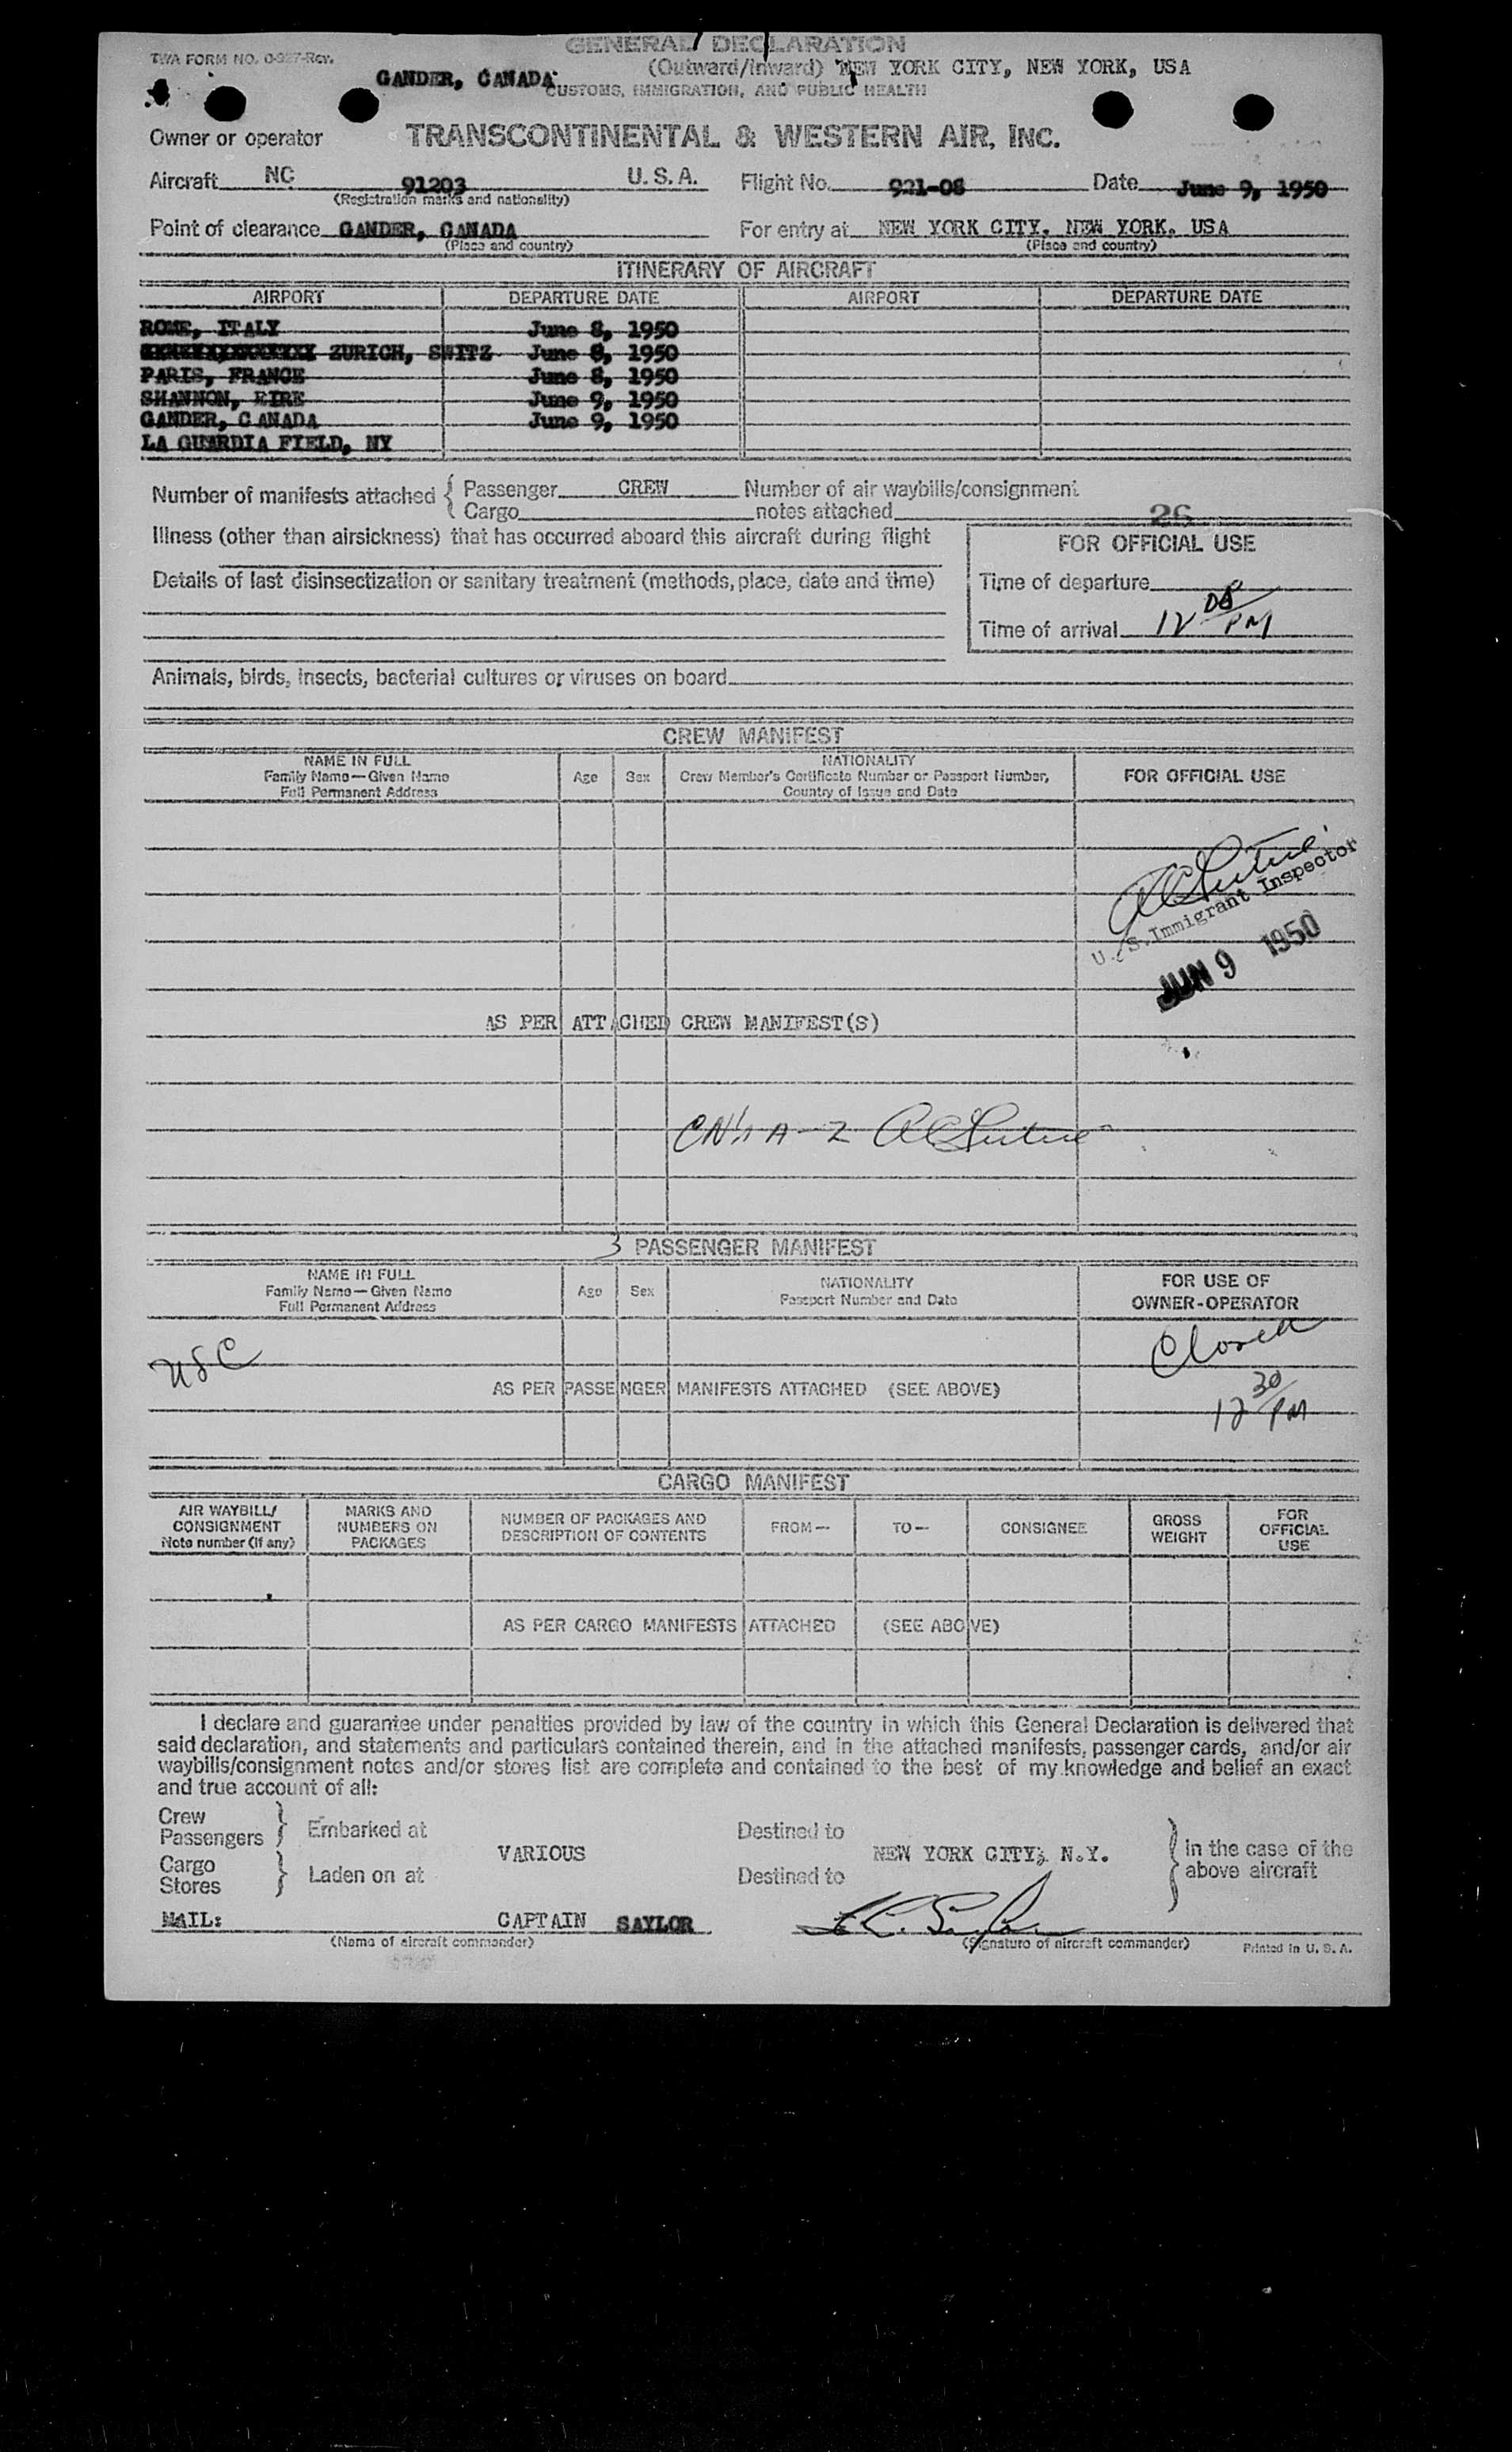 TWA FORM NO. 0-927-Rev.
GENERAL DECLARATION
(Outward/Inward) NEW YORK CITY, NEW YORK, USA
GANDER, CANADA
CUSTOMS, IMMIGRATION, AND PUBLIC HEALTH
Owner or operator TRANSCONTINENTAL & WESTERN AIR, INC.
Aircraft NC 91203 U. S. A. Flight No. 921-08 Date June 9, 1950
(Registration marks and nationality)
Point of clearance GANDER, CANADA For entry at NEW YORK CITY, NEW YORK, USA
(Place and country) (Place and country)
ITINERARY OF AIRCRAFT
AIRPORT DEPARTURE DATE AIRPORT DEPARTURE DATE
ROME, ITALY June 8, 1950
ZURICH, SWITZ June 8, 1950
PARIS, FRANCE June 8, 1950
SHANNON, EIRE June 9, 1950
GANDER, CANADA June 9, 1950
LA GUARDIA FIELD, NY
Number of manifests attached { Passenger CREW Number of air waybills/consignment
Cargo notes attached 26
Illness (other than airsickness) that has occurred aboard this aircraft during flight
FOR OFFICIAL USE
Details of last disinsectization or sanitary treatment (methods, place, date and time)
Time of departure
Time of arrival 12 08 PM
Animals, birds, insects, bacterial cultures or viruses on board
CREW MANIFEST
NAME IN FULL
Family Name—Given Name
Full Permanent Address
Age Sex
NATIONALITY
Crew Member's Certificate Number or Passport Number,
Country of Issue and Date
FOR OFFICIAL USE
U. S. Immigrant Inspector
JUN 9 1950
AS PER ATTACHED CREW MANIFEST(S)
A-Z
3 PASSENGER MANIFEST
NAME IN FULL
Family Name—Given Name
Full Permanent Address
Age Sex
NATIONALITY
Passport Number and Date
FOR USE OF
OWNER-OPERATOR
USC
Closed
AS PER PASSENGER MANIFESTS ATTACHED (SEE ABOVE)
12 30 PM
CARGO MANIFEST
AIR WAYBILL/
CONSIGNMENT
Note number (if any)
MARKS AND
NUMBERS ON
PACKAGES
NUMBER OF PACKAGES AND
DESCRIPTION OF CONTENTS
FROM—
TO—
CONSIGNEE
GROSS
WEIGHT
FOR
OFFICIAL
USE
AS PER CARGO MANIFESTS ATTACHED (SEE ABOVE)
I declare and guarantee under penalties provided by law of the country in which this General Declaration is delivered that
said declaration, and statements and particulars contained therein, and in the attached manifests, passenger cards, and/or air
waybills/consignment notes and/or stores list are complete and contained to the best of my knowledge and belief an exact
and true account of all:
Crew
Passengers } Embarked at Destined to
VARIOUS NEW YORK CITY, N.Y.
Cargo
Stores } Laden on at Destined to
} In the case of the
above aircraft
MAIL: CAPTAIN SAYLOR
(Name of aircraft commander) (Signature of aircraft commander) Printed in U. S. A.